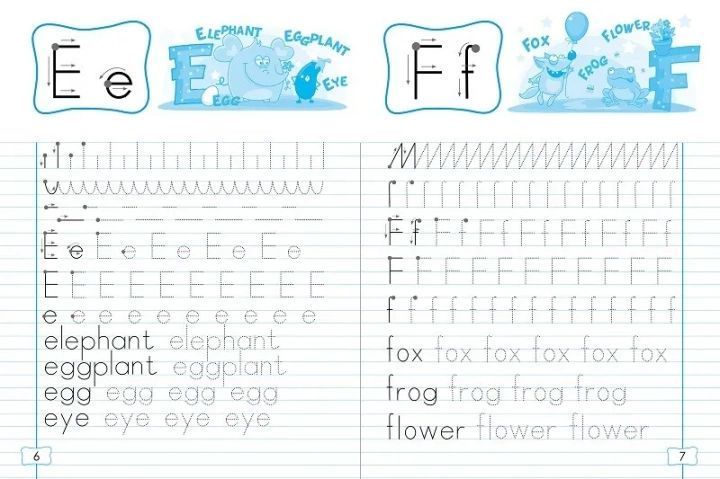 E e
ELEPHANT
EGGPLANT
EYE
EGG
E e E e E e E e E e
E E E E E E E E E E
e e e e e e e e e e
elephant elephant
eggplant eggplant
egg egg egg egg
eye eye eye eye
6
F f
FOX
FROG
FLOWER
F f F f F f F f F f F f F f F f
F F F F F F F F F F F
f f f f f f f f f f f f f f f
fox fox fox fox fox fox
frog frog frog frog
flower flower flower
7